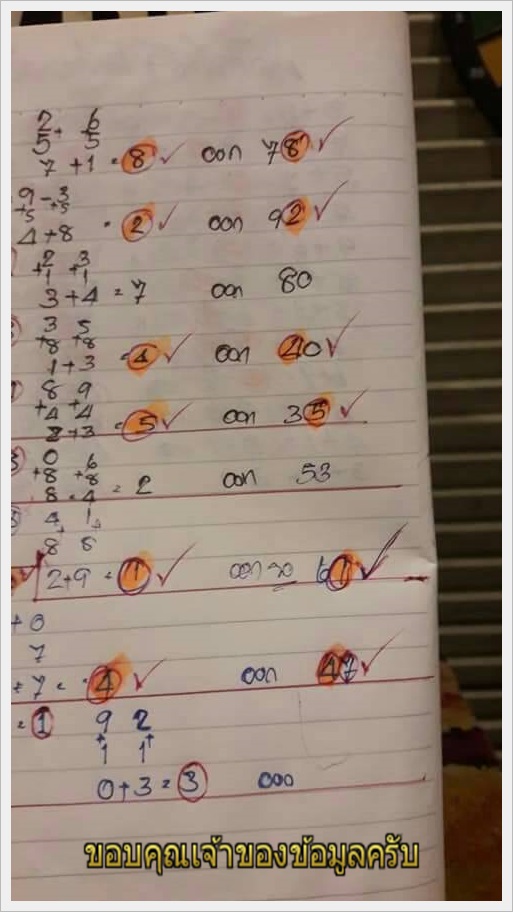 2 6
5+ 5
7 +1 = 8 ✓ ออก 78 ✓
9 - 3
+5 +5
4+8 = 2 ✓ ออก 92 ✓
2 3
+1 +1
3+4 = 7 ออก 80
3 5
+8 +8
1+3 = 4 ✓ ออก 40 ✓
8 9
+4 +4
2+3 = 5 ✓ ออก 35 ✓
0 6
+8 +8
8+4 = 2 ออก 53
4 1
8 8
2+9 = 1 ✓ ออก 61 ✓
+0
7
+7 = 4 ✓ ออก 47 ✓
= 1 9 2
+ +
1 1
0+3 = 3 ออก
ขอบคุณเจ้าของข้อมูลครับ